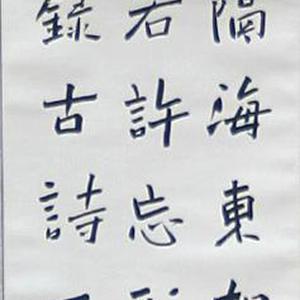 隔海東如
若許忘形
錄古詩